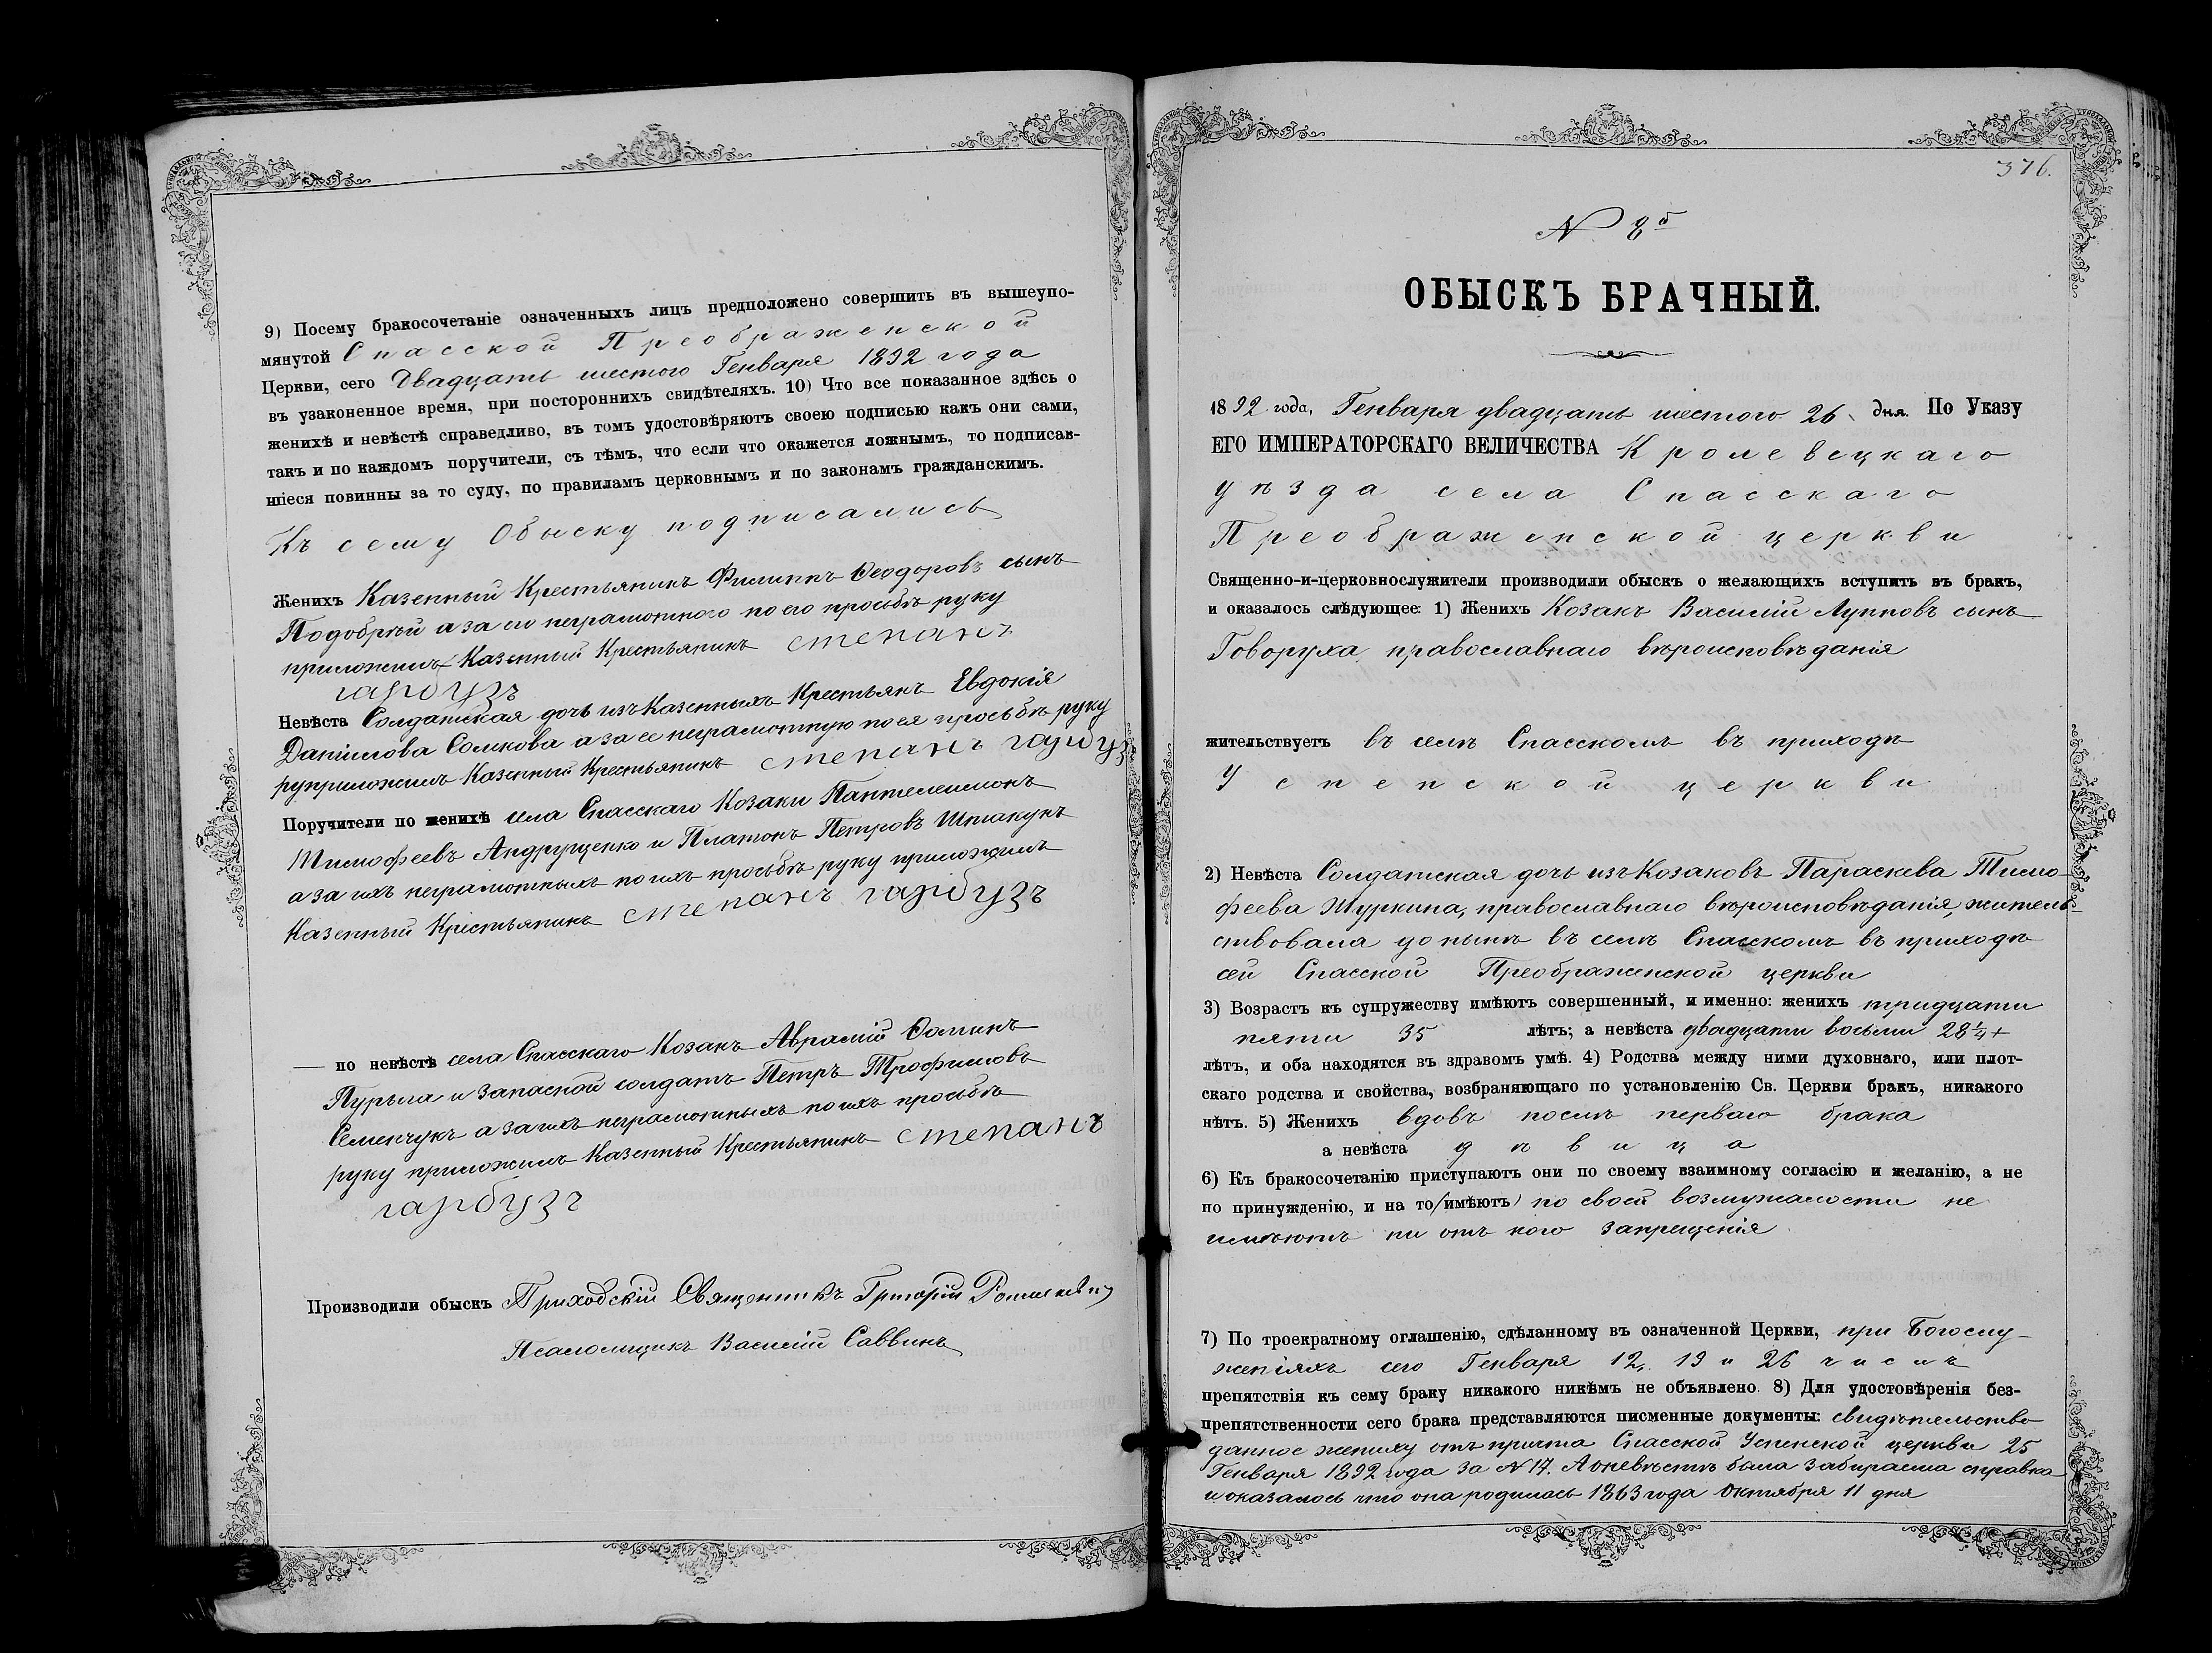 9) Посему бракосочетаніе означенныхъ лицъ предположено совершить въ вышеупо-
мянутой Спасской Преображенской
Церкви, сего Двадцать шестого Генваря 1892 года
въ узаконенное время, при постороннихъ свидѣтеляхъ. 10) Что все показанное здѣсь о
женихѣ и невѣстѣ справедливо, въ томъ удостовѣряютъ своею подписью какъ они сами,
такъ и по каждомъ поручители, съ тѣмъ, что если что окажется ложнымъ, то подписав-
шіеся повинны за то суду, по правиламъ церковнымъ и по законамъ гражданскимъ.
Къ сему Обыску подписались
Женихъ Казенный Крестьянинъ Филиппъ Ѳеодоровъ сынъ
Подобрѣй а за его неграмотного по его просьбѣ руку
приложилъ Казенный Крестьянинъ степанъ
гарбузъ
Невѣста Солдатская дочь изъ Казенныхъ Крестьянъ Евдокія
Даніилова Сомкова а за ее неграмотную по ея просьбѣ руку
руприложилъ Казенный Крестьянинъ степанъ гарбуз
Поручители по женихѣ села Спасскаго Козаки Пантелеимонъ
Тимофеевъ Андрущенко и Платонъ Петровъ Шпакунъ
а за ихъ неграмотныхъ по ихъ просьбѣ руку приложилъ
Казенный Крестьянинъ степанъ гарбузъ
— по невѣстѣ села Спасскаго Козакъ Аврамій Ѳоминъ
Пурыга и Запасной солдатъ Петръ Трофимовъ
Семенчукъ а за ихъ неграмотныхъ по ихъ просьбѣ
руку приложилъ Казенный Крестьянинъ степанъ
гарбузъ
Производили обыскъ Приходскій Священникъ Григорій
Псаломщикъ Василій Саввинъ
376.
N 8й
ОБЫСКЪ БРАЧНЫЙ.
1892 года, Генваря двадцать шестого 26 дня. По Указу
ЕГО ИМПЕРАТОРСКАГО ВЕЛИЧЕСТВА Кролевецкаго
уѣзда села Спасскаго
Преображенской церкви
Священно-и-церковнослужители производили обыскъ о желающихъ вступить въ бракъ,
и оказалось слѣдующее: 1) Женихъ Козакъ Василій Лупповъ сынъ
Говоруха, православнаго вѣроисповѣданія
жительствуетъ въ селѣ Спасскомъ въ приходѣ
Успенской церкви
2) Невѣста Солдатская дочь изъ Козаковъ Параскева Тимо-
феева Журкина, православнаго вѣроисповѣданія, житель-
ствовала до нынѣ въ селѣ Спасскомъ въ приходѣ
сей Спасской Преображенской церкви
3) Возрастъ къ супружеству имѣютъ совершенный, и именно: женихъ тридцати
пяти 35 лѣтъ; а невѣста двадцати восьми 28 1/4 +
лѣтъ, и оба находятся въ здравомъ умѣ. 4) Родства между ними духовнаго, или плот-
скаго родства и свойства, возбраняющаго по установленію Св. Церкви бракъ, никакого
нѣтъ. 5) Женихъ вдовъ послѣ перваго брака
а невѣста дѣвица
6) Къ бракосочетанію приступаютъ они по своему взаимному согласію и желанію, а не
по принужденію, и на то (имѣютъ) по своей возмужалости не
имѣютъ ни отъ кого запрещенія
7) По троекратному оглашенію, сдѣланному въ означенной Церкви, при Богослу-
женіяхъ сего Генваря 12, 19 и 26 числъ
препятствія къ сему браку никакого никѣмъ не объявлено. 8) Для удостовѣренія без-
препятственности сего брака представляются писменные документы: свидѣтельство
данное жениху отъ причта Спасской Успенской церкви 25
Генваря 1892 года за N 17. А о невѣстѣ была забираема справка
и оказалось что она родилась 1863 года Октября 11 дня